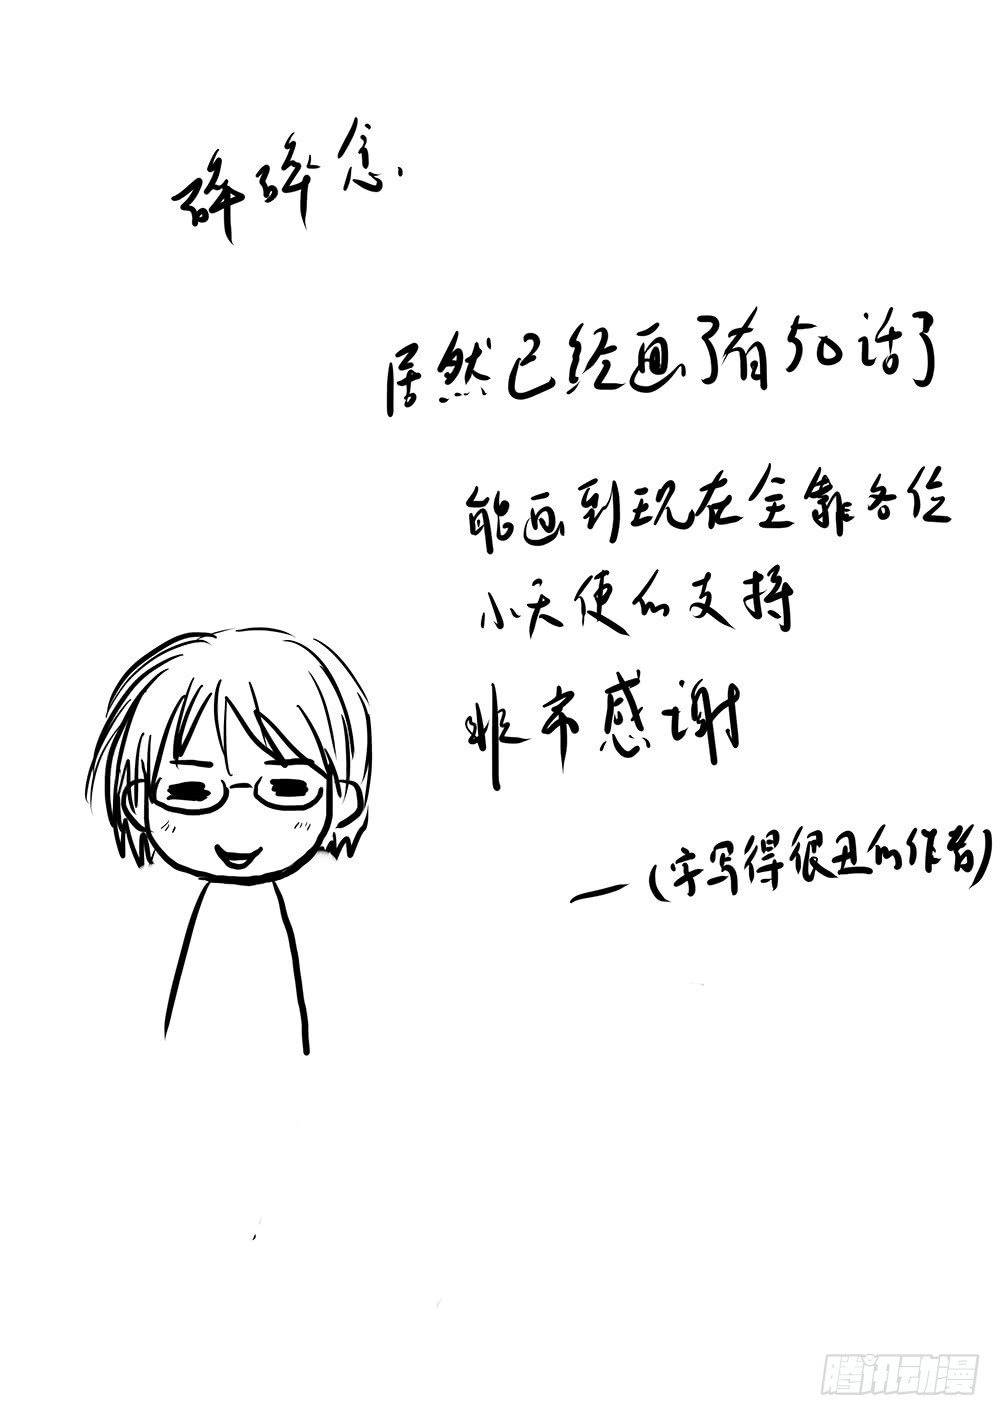 碎碎念.
居然已经画了有50话了
能画到现在全靠各位
小天使的支持
非常感谢
—(字写得很丑的作者)
腾讯动漫